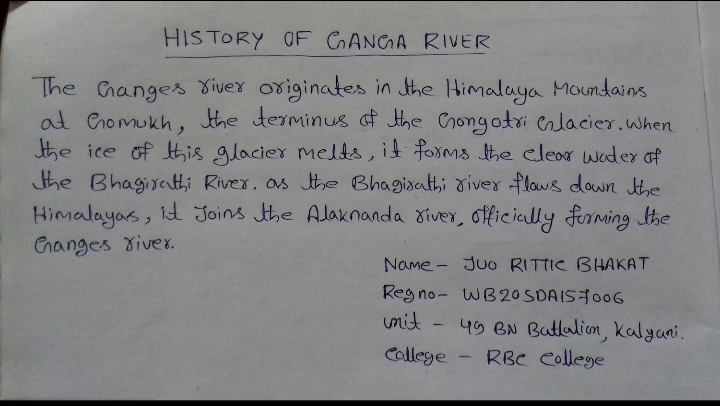 HISTORY OF GANGA RIVER
The Ganges river originates in the Himalaya Mountains
at Gomukh, the terminus of the Gongotri Glacier. When
the ice of this glacier melts, it forms the clear water of
the Bhagirathi River. as the Bhagirathi river flows down the
Himalayas, it Joins the Alaknanda river, officially forming the
Ganges river.
Name - JUO RITTIC BHAKAT
Regno - WB20SDA157006
unit - 49 BN Battalion, Kalyani.
College - RBC College